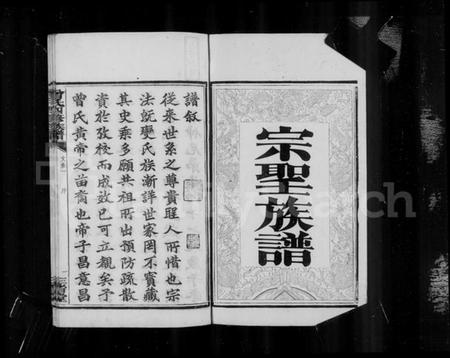 宗聖族譜
譜叙
從来世系之尊貴踁人所惜也宗
法既變氏族漸詳世家罔不寳藏
其史乘多願共祖所出預防疏散
資於攷校而成效已可立覩矣予
曾氏黃帝之苗裔也帝子昌意昌